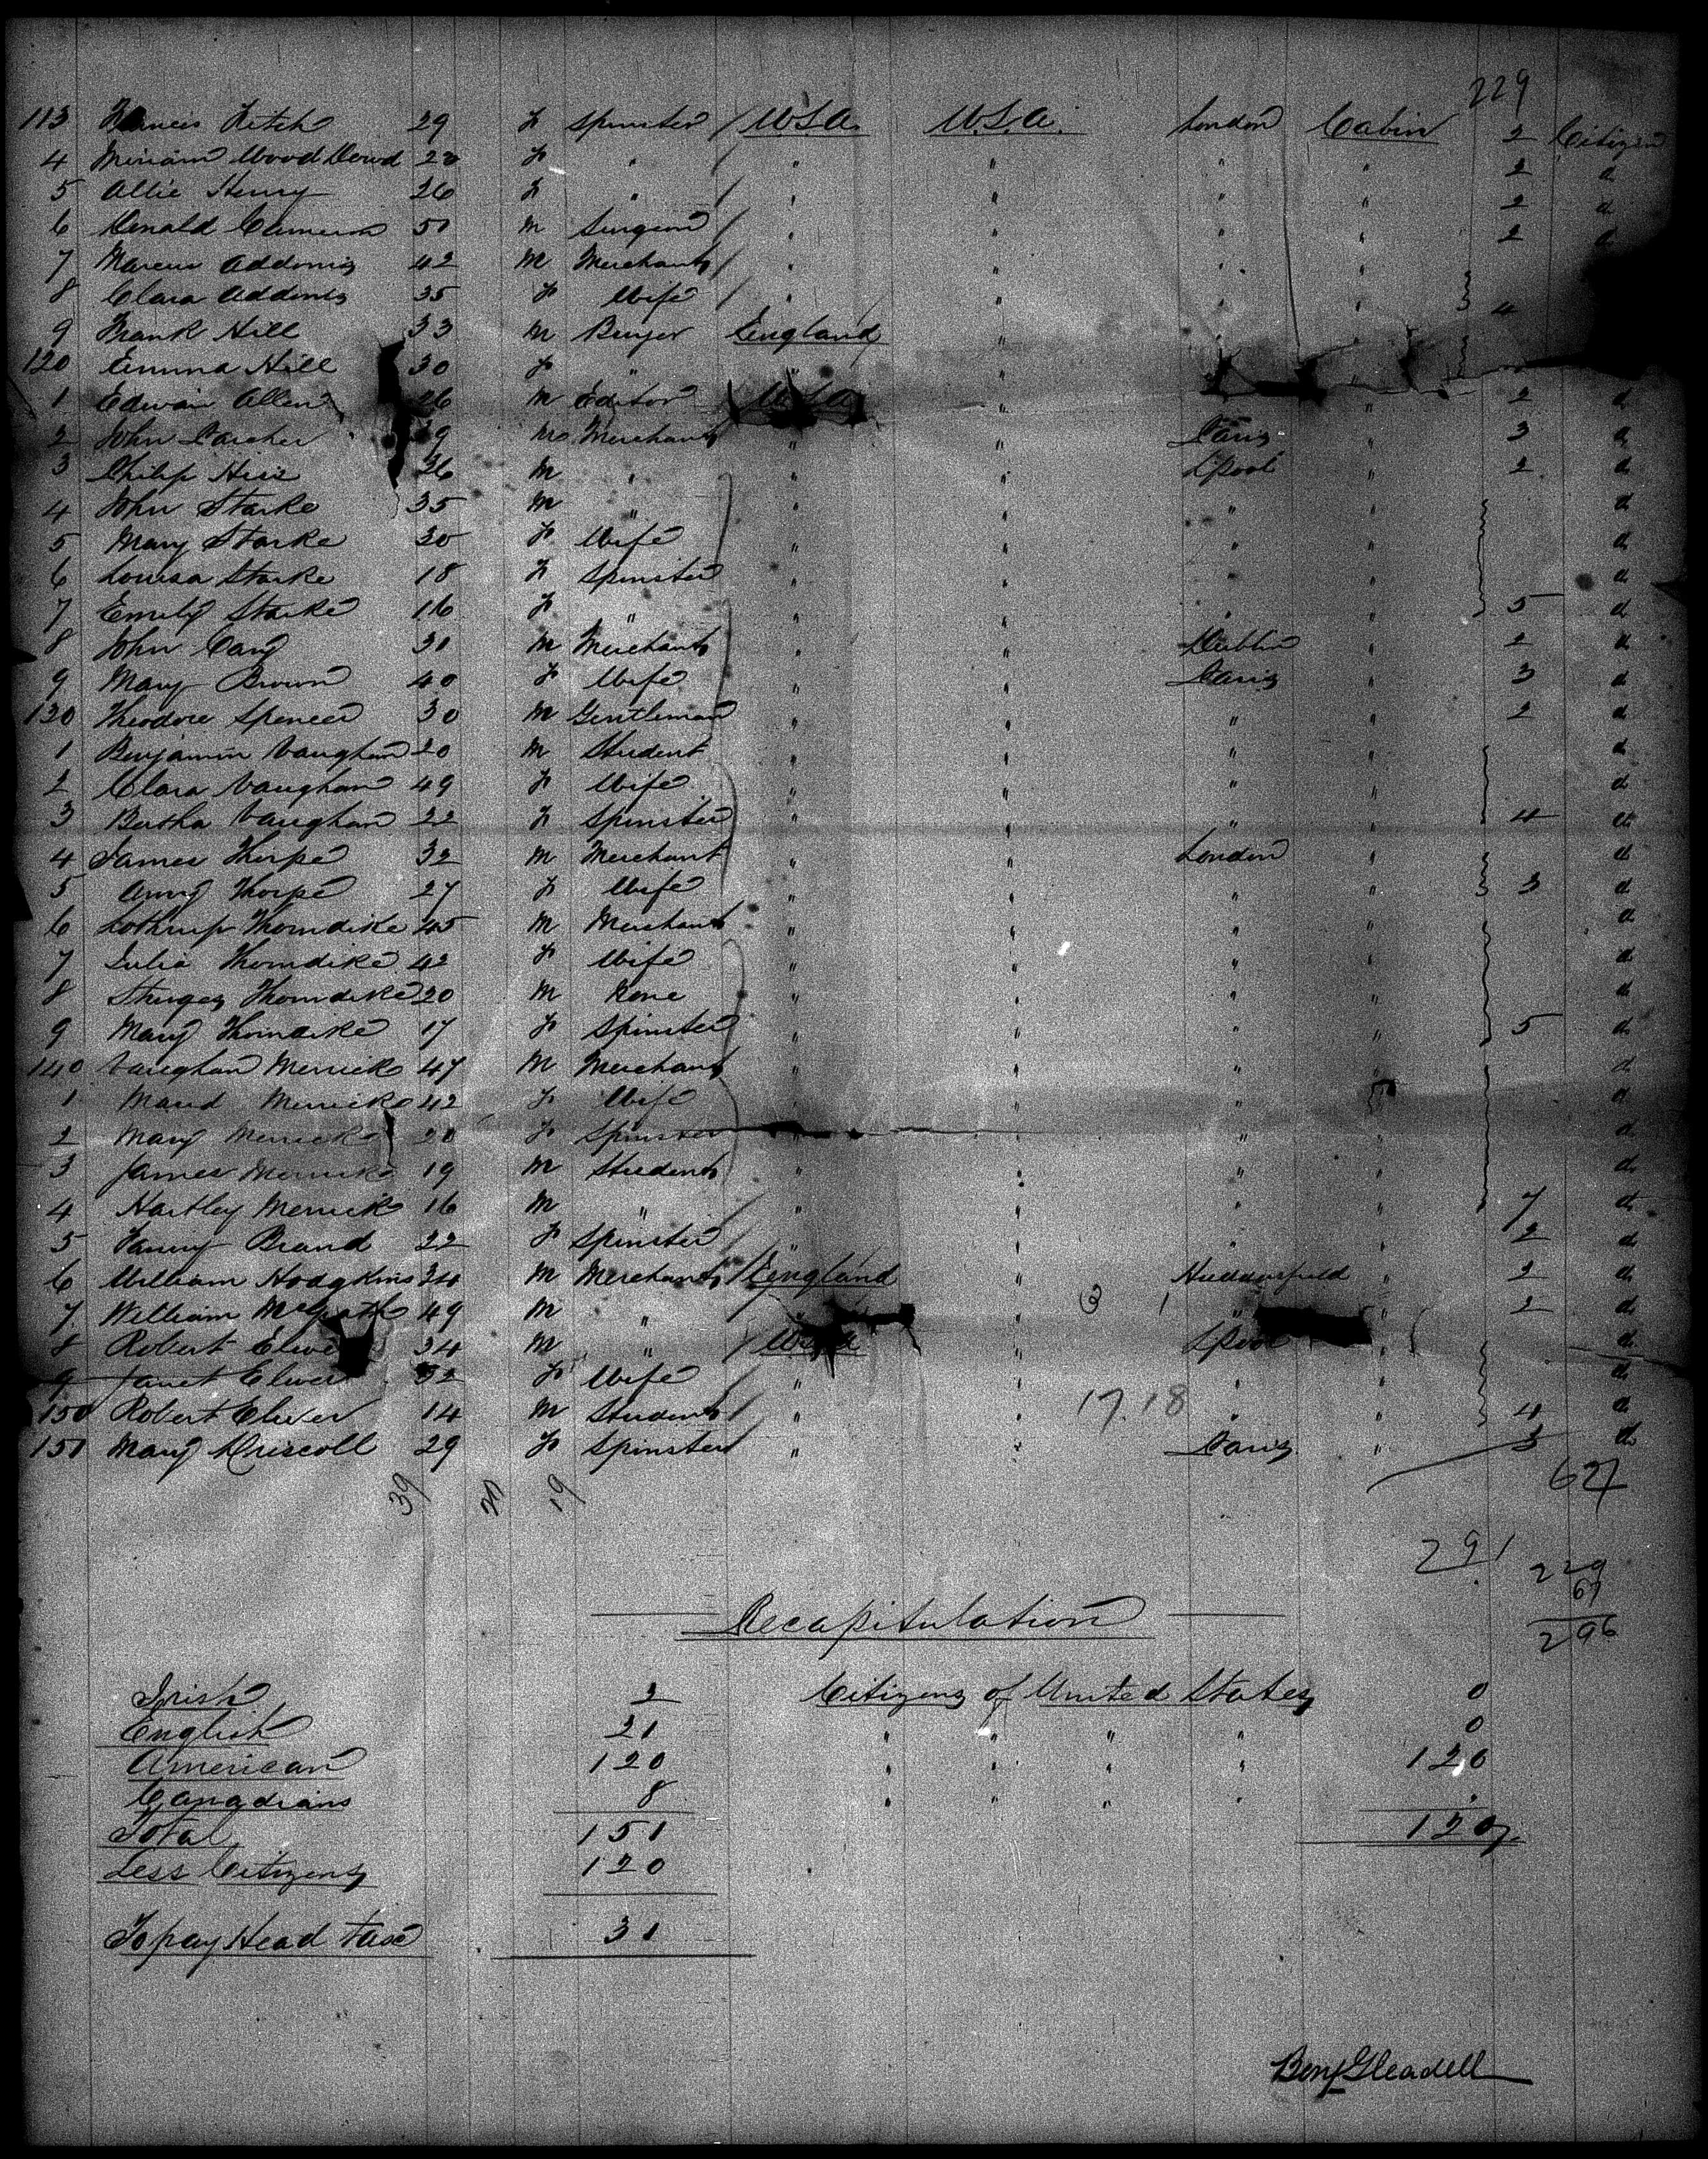 229
113 Francis Fitch 29 F Spinster / U.S.A. U.S.A. London Cabin 2 Citizen
4 Miriam Wood Dowd 28 F " / " " " " 2 d
5 Allie Henry 26 F " / " " " " 2 d
6 Donald Cameron 50 M Surgeon / " " " " 2 d
7 Marcus Addoms 42 M Merchant / " " " "
8 Clara Addoms 35 F Wife / " " " " 4
9 Frank Hill 33 M Buyer England "
120 Emma Hill 30 F " " "
1 Edwin Allen 26 M Editor U.S.A " " 2 d
2 John 39 M Merchant " " Paris " 3 d
3 Philip 36 M " " " L'pool " 2 d
4 John Starke 35 M " " " " " d
5 Mary Starke 30 F Wife " " " " d
6 Louisa Starke 18 F Spinster " " " " d
7 Emily Starke 16 F " " " " " 5 d
8 John Cary 31 M Merchant " " Dublin " 2 d
9 Mary Brown 40 F Wife " " Paris " 3 d
130 Theodore Spencer 30 M Gentleman " " " " 2 d
1 Benjamin Vaughan 20 M Student " " " " d
2 Clara Vaughan 49 F Wife " " " " d
3 Bertha Vaughan 22 F Spinster " " " " 4 d
4 James Thorpe 32 M Merchant " " London " d
5 Anny Thorpe 27 F Wife " " " " 3 d
6 Lothrup Thorndike 45 M Merchant " " " " d
7 Julia Thorndike 42 F Wife " " " " d
8 Sturges Thorndike 20 M None " " " " d
9 Mary Thorndike 17 F Spinster " " " " 5 d
140 Vaughan Merrick 47 M Merchant " " " " d
1 Maud Merrick 42 F Wife " " " d
2 Mary Merrick 20 F Spinster " " " d
3 James Merrick 19 M Student " " " " d
4 Hartley Merrick 16 M " " " " " 7 d
5 Fanny Brand 22 F Spinster / " " " " 2 d
6 William Hodgkins 34 M Merchant / England " Huddersfield " 2 d
7 William McGrath 49 M " " " " 2 d
8 Robert 34 M " / U.S.A " L'pool " d
9 Janet Elwer 32 F Wife / " " " " d
150 Robert Elwer 14 M Student / " " 17.18 " " 4 d
151 Mary Driscoll 29 F Spinster / " " Paris " 3 d
39 19
67
291
229
67
296
Recapitulation
Irish 2 Citizens of United States 0
English 21 " " " " 0
American 120 " " " " 120
Canadians 8 " " " "
Total 151 120
Less Citizens 120
To pay Head Tax 31
Benj Gleadell